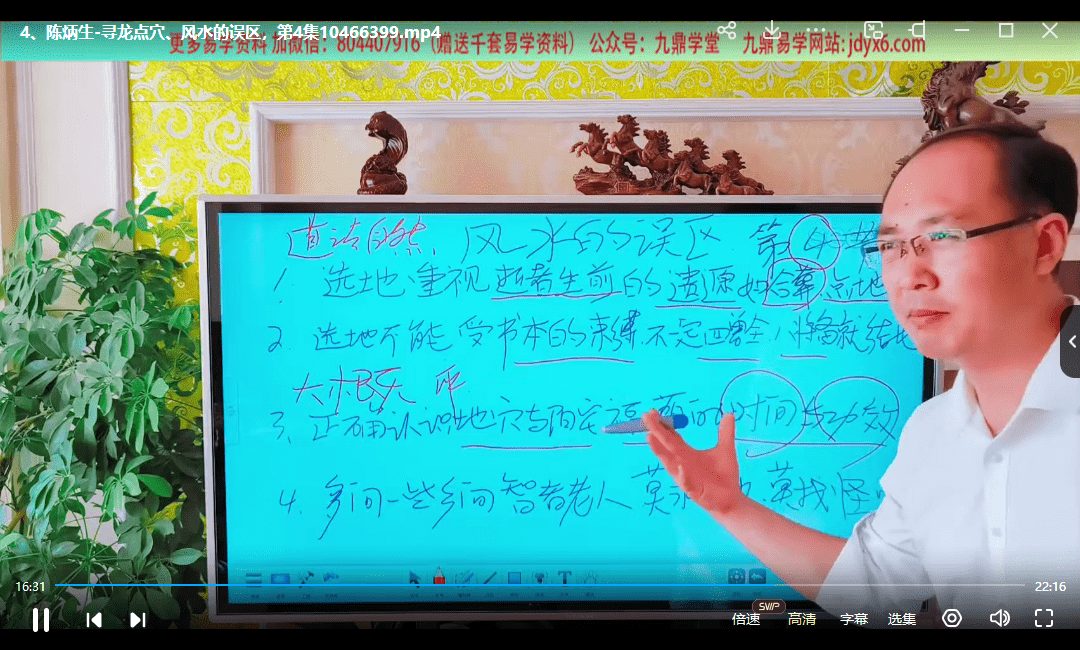 4、陈炳生-寻龙点穴、风水的误区，第4集10466399.mp4
更多易学资料 加微信：804407916（赠送千套易学资料）公众号：九鼎学堂 九鼎易学网站: jdyx6.com
道法自然 风水的误区 第4
1. 选地重视 生前的遗愿 如合葬 点地
2. 选地不能受书本的束缚 不一定四兽全 将就
3. 正确认识地穴与阴宅 的时间 功效
4. 多问一些乡间智者老人 莫 莫找怪
16:31
22:16
SVIP
倍速 高清 字幕 选集